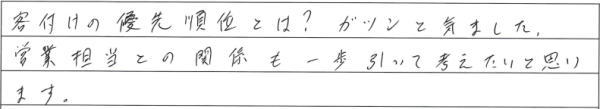 客付けの優先順位とは？ガツンと気ました。
営業担当との関係も一歩引いて考えたいと思い
ます。